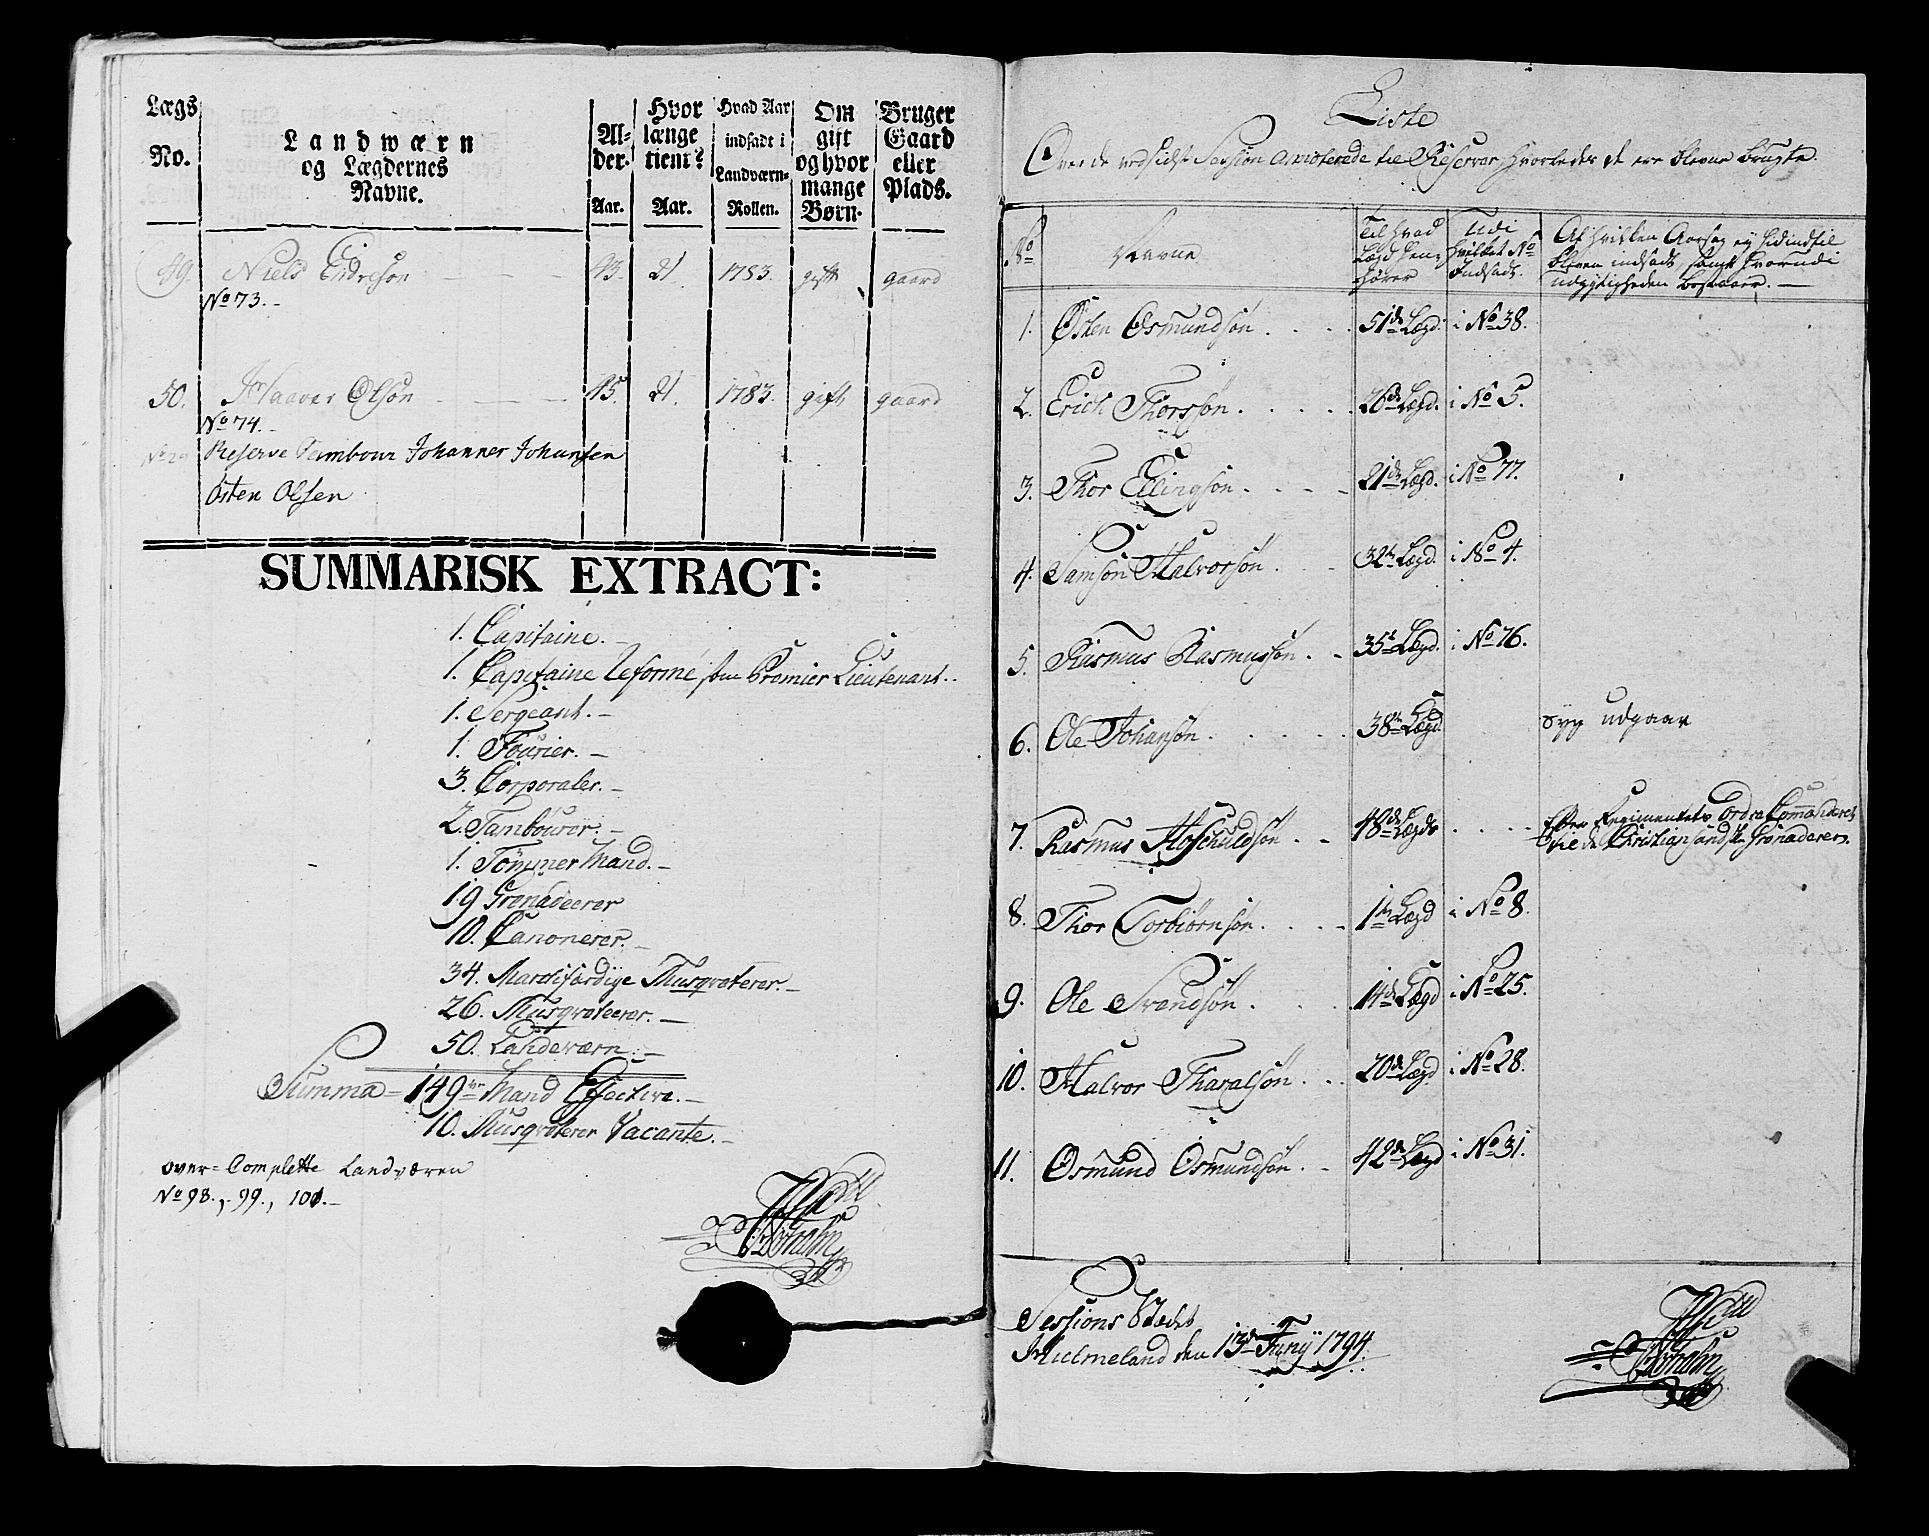 Lægs No. | Landwærn og Lægdernes Navne. | Al- der. Aar. | Hvor længe tient? Aar. | Hvad Aar indsadt i Landværn- Rollen. | Om gift og hvor mange Børn. | Bruger Gaard eller Plads.
49. Niels Endreson 43. 21 1783. gift gaard
No 73.
50. Haaver Olson 45. 21. 1783. gift gaard
No 74.
No 29 Reserve Tambour Johannes Johansen
Østen Olsen
SUMMARISK EXTRACT:
1. Capitaine.
1. Capitaine Reformé, som Premier Lieutenant.
1. Sergeant.
1. Fourier.
3. Corporaler.
2. Tambourer.
1. Tømmer Mand.
19 Grenadeerer
10. Canonerer.
34. Marchfærdige Musqveterer.
26. Musqveteerer.
50. Landeværn.
Summa = 149 Mand Effective.
10. Musqveterer Vacante.
over-Complette Landværen
No 98., 99., 101.
Liste
Over de ved sidste Session Anoterede til Reserver, hvorledes de ere blevne brugte.
No | Navne | Til hvad Lægd hen- hører | Udi hvilket No Indsadt. | Af hvilken Aarsag ey hid indtil bleven indsadt, samt hvorudi udygtigheden bestaaer.
1. Østen Osmundsøn 51de Lægd. i No 38.
2. Erich Thorssøn 26de Lægd. i No 5.
3. Thor Ellingsøn 21de Lægd. i No 77.
4. Samson Halvorsøn 32te Lægd. i No 4.
5. Rasmus Rasmussøn 35te Lægd. i No 76.
6. Ole Johansøn 38te Lægd. syg udgaar
7. Rasmus Hoschuldsøn 48de Lægd Efter Regimentets Ordre Commanderet
til de Christiansandske Grenaderer.
8. Thor Torbiørnsøn 1te Lægd i No 8.
9. Ole Svendsøn 14de Lægd i No 25.
10. Halvor Tharalsøn 20de Lægd i No 28.
11. Osmund Osmundsøn 42de Lægd i No 31.
Sessions Stædet
Hielmeland den 13de Juny 1794.